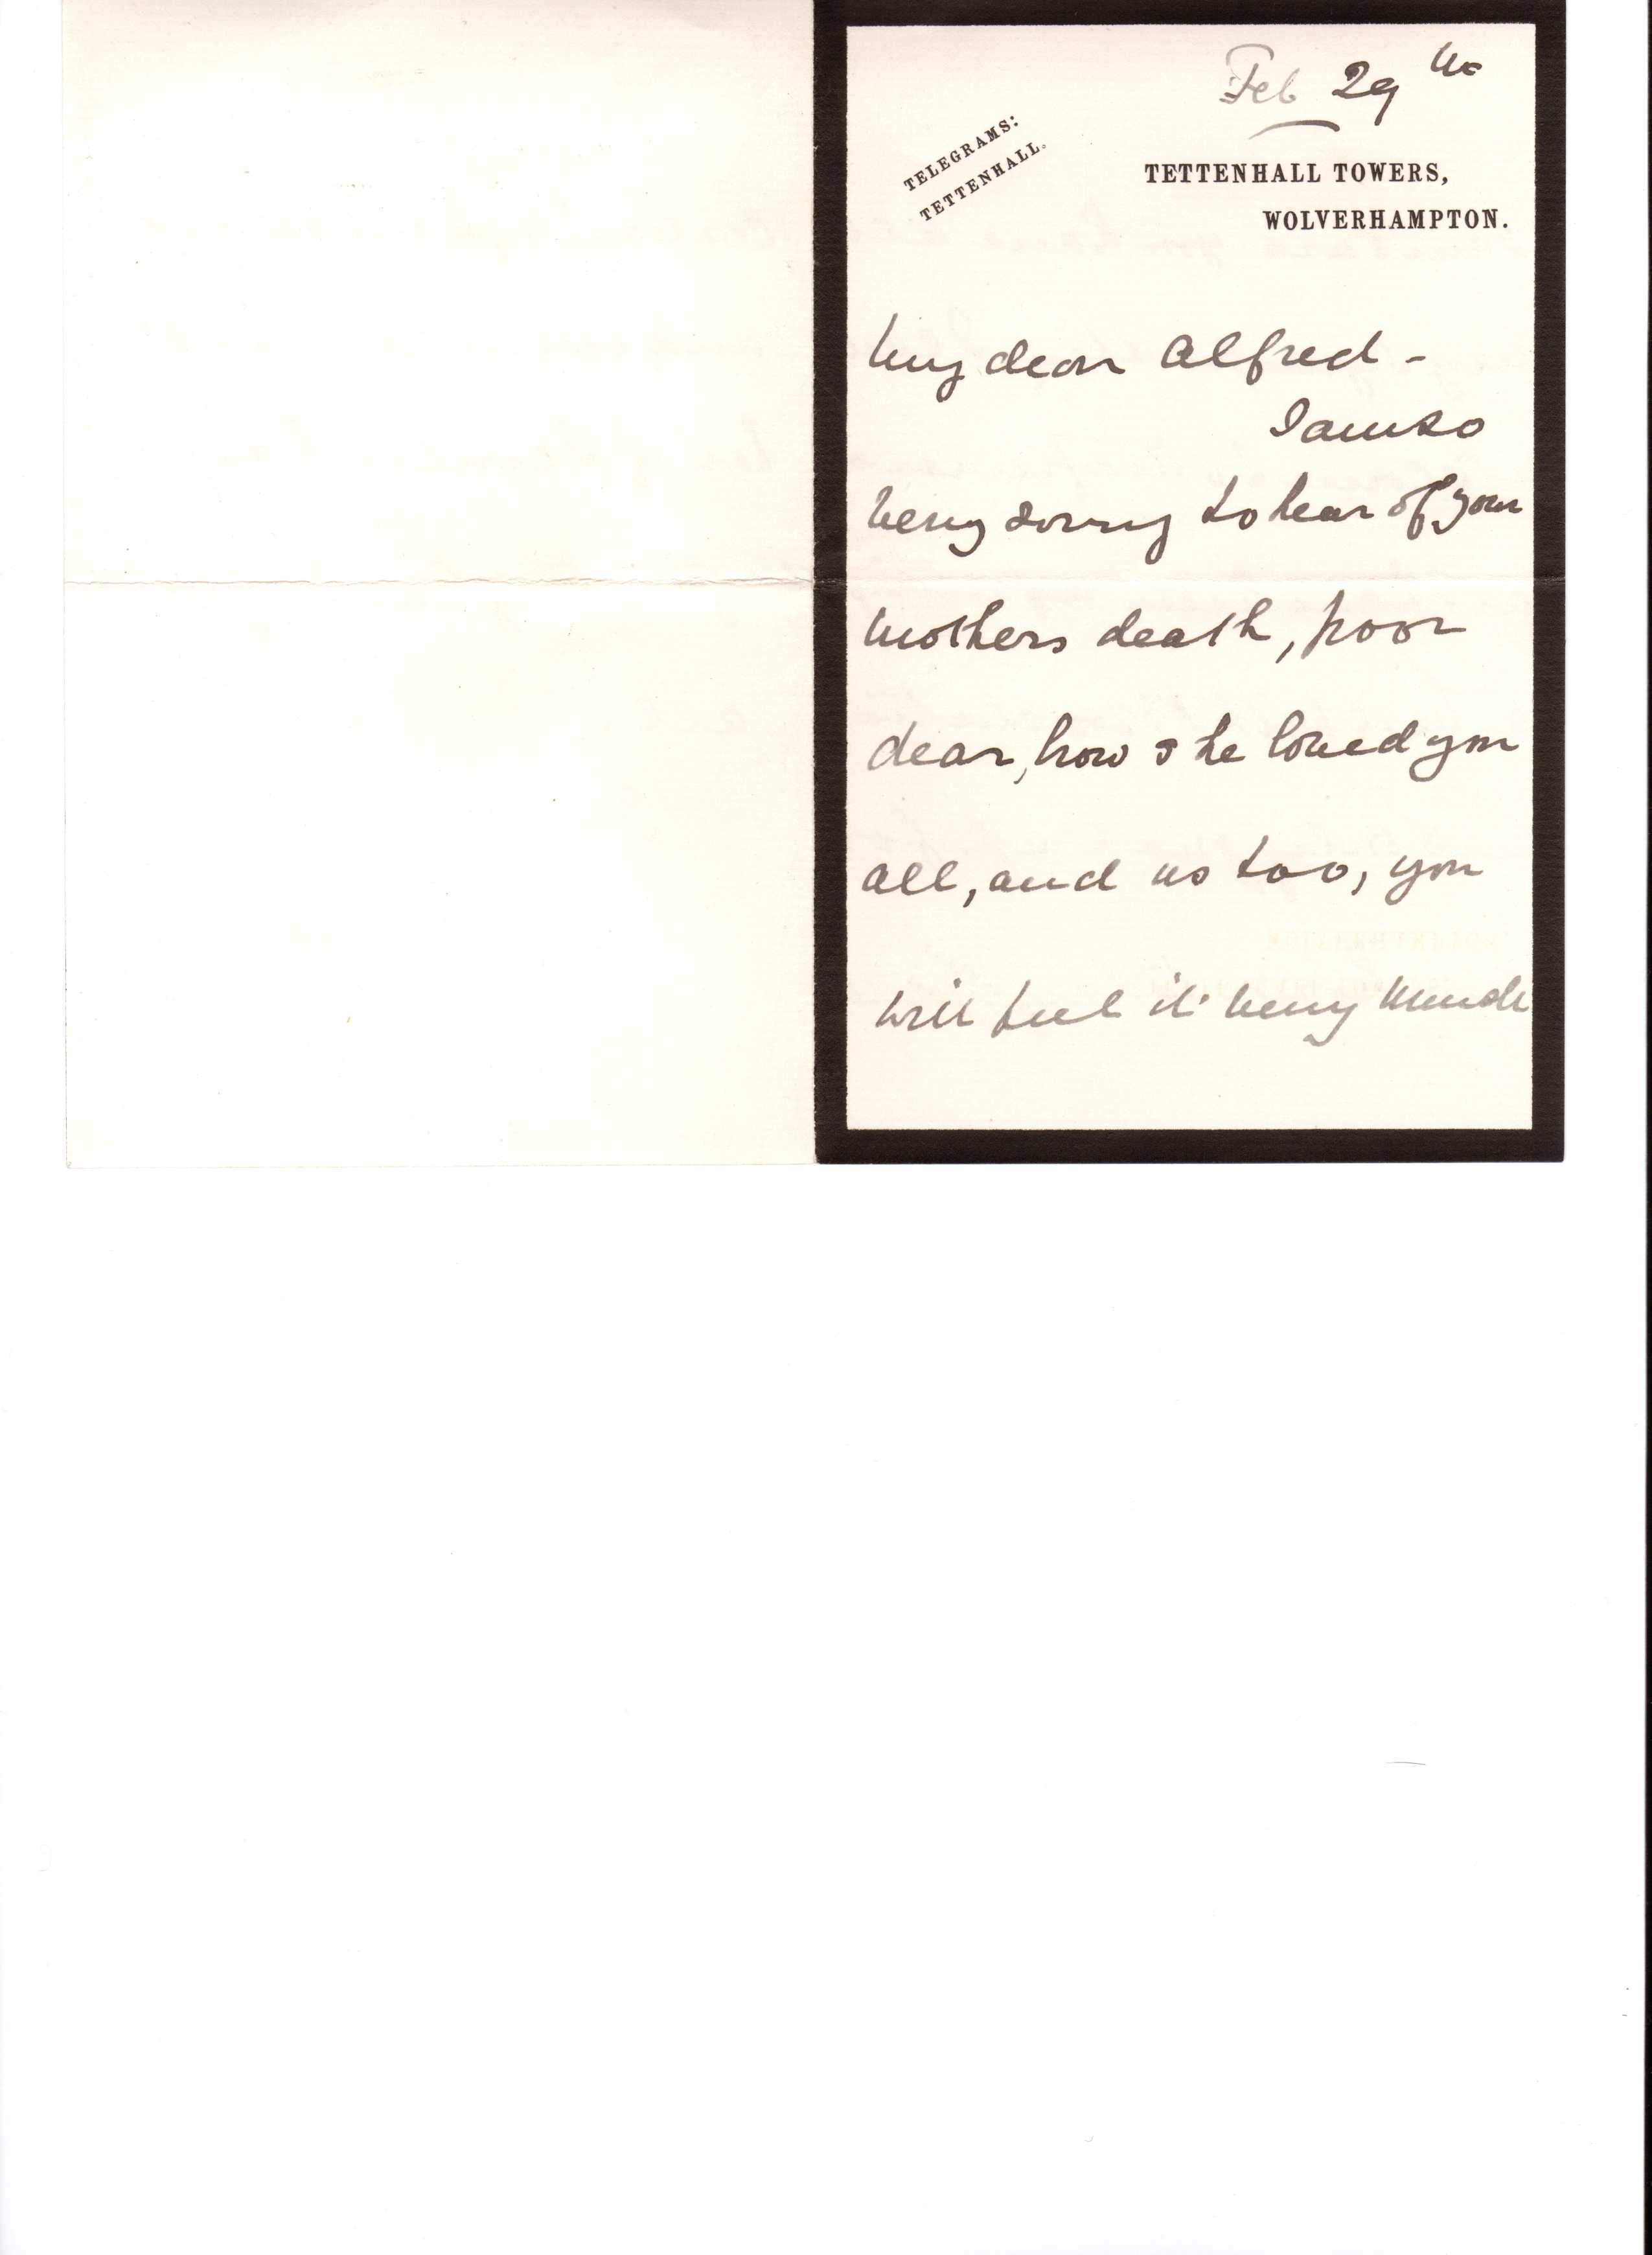 Feb 29th
TELEGRAMS:
TETTENHALL.
TETTENHALL TOWERS,
WOLVERHAMPTON.
My dear Alfred -
I am so
very sorry to hear of your
mothers death, poor
dear, how she loved you
all, and us too, you
will feel it very much